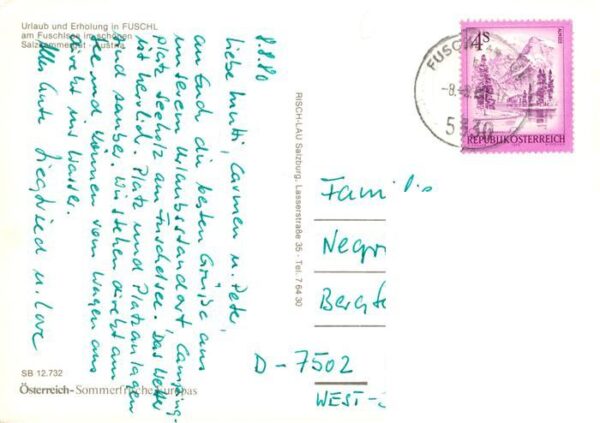 Urlaub und Erholung in FUSCHL
am Fuschlsee im schönen
Salzkammergut - Austria
8.8.80
Liebe Mutti, Carmen u. Peter,
an Euch die besten Grüsse aus
unserem Urlaubsstandort, Camping-
platz Seeholz am Fuschelsee. Das Wetter
ist herrlich. Platz und Platzanlagen
sind sauber. Wir stehen direkt am
See und können vom Wagen aus
direkt ins Wasser.
Alles Gute Siegfried u. Love
SB 12.732
Österreich-Sommerfrische Europas
RISCH-LAU Salzburg, Lasserstraße 35 · Tel. 7 64 30
FUSCHL
-8.
5330
4S
REPUBLIK ÖSTERREICH
Famili
Negr
Bergte
D-7502
WEST-